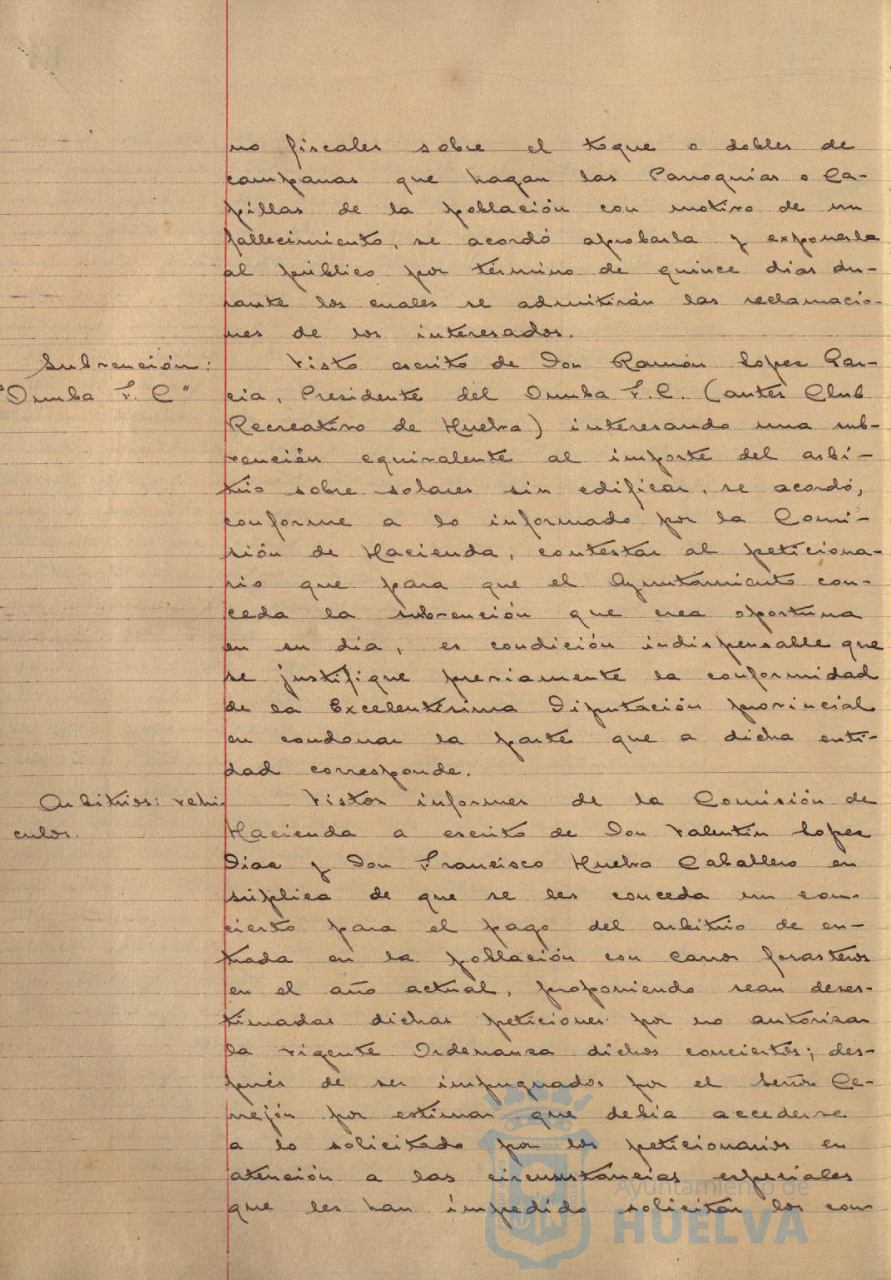 no fiscales sobre el toque o dobles de
campanas que hagan las Parroquias o Ca-
pillas de la población con motivo de un
fallecimiento, se acordó aprobarla y exponerla
al público por término de quince días du-
rante los cuales se admitirán las reclamacio-
nes de los interesados.
Subvención:
"Onuba F. C"
Visto escrito de Don Ramón Lopez Gar-
cia, Presidente del Onuba F.C. (antes Club
Recreativo de Huelva) interesando una sub-
vención equivalente al importe del arbi-
trio sobre solares sin edificar, se acordó,
conforme a lo informado por la Comi-
sión de Hacienda, contestar al peticiona-
rio que para que el Ayuntamiento con-
ceda la subvención que crea oportuna
en su día, es condición indispensable que
se justifique previamente la conformidad
de la Excelentísima Diputación provincial
en condonar la parte que a dicha enti-
dad corresponde.
Arbitrios: vehi-
culos.
Vistos informes de la Comisión de
Hacienda a escrito de Don Valentín Lopez
Diaz y Don Francisco Huelva Caballero en
súplica de que se les conceda un con-
cierto para el pago del arbitrio de en-
trada en la población con carros forasteros
en el año actual, proponiendo sean deses-
timadas dichas peticiones por no autorizar
la vigente Ordenanza dichos conciertos; des-
pués de ser impugnados por el Señor Ce-
rejón por estimar que debía accederse
a lo solicitado por los peticionarios en
atención a las circunstancias especiales
que les han impedido solicitar los con-
Ayuntamiento de
HUELVA